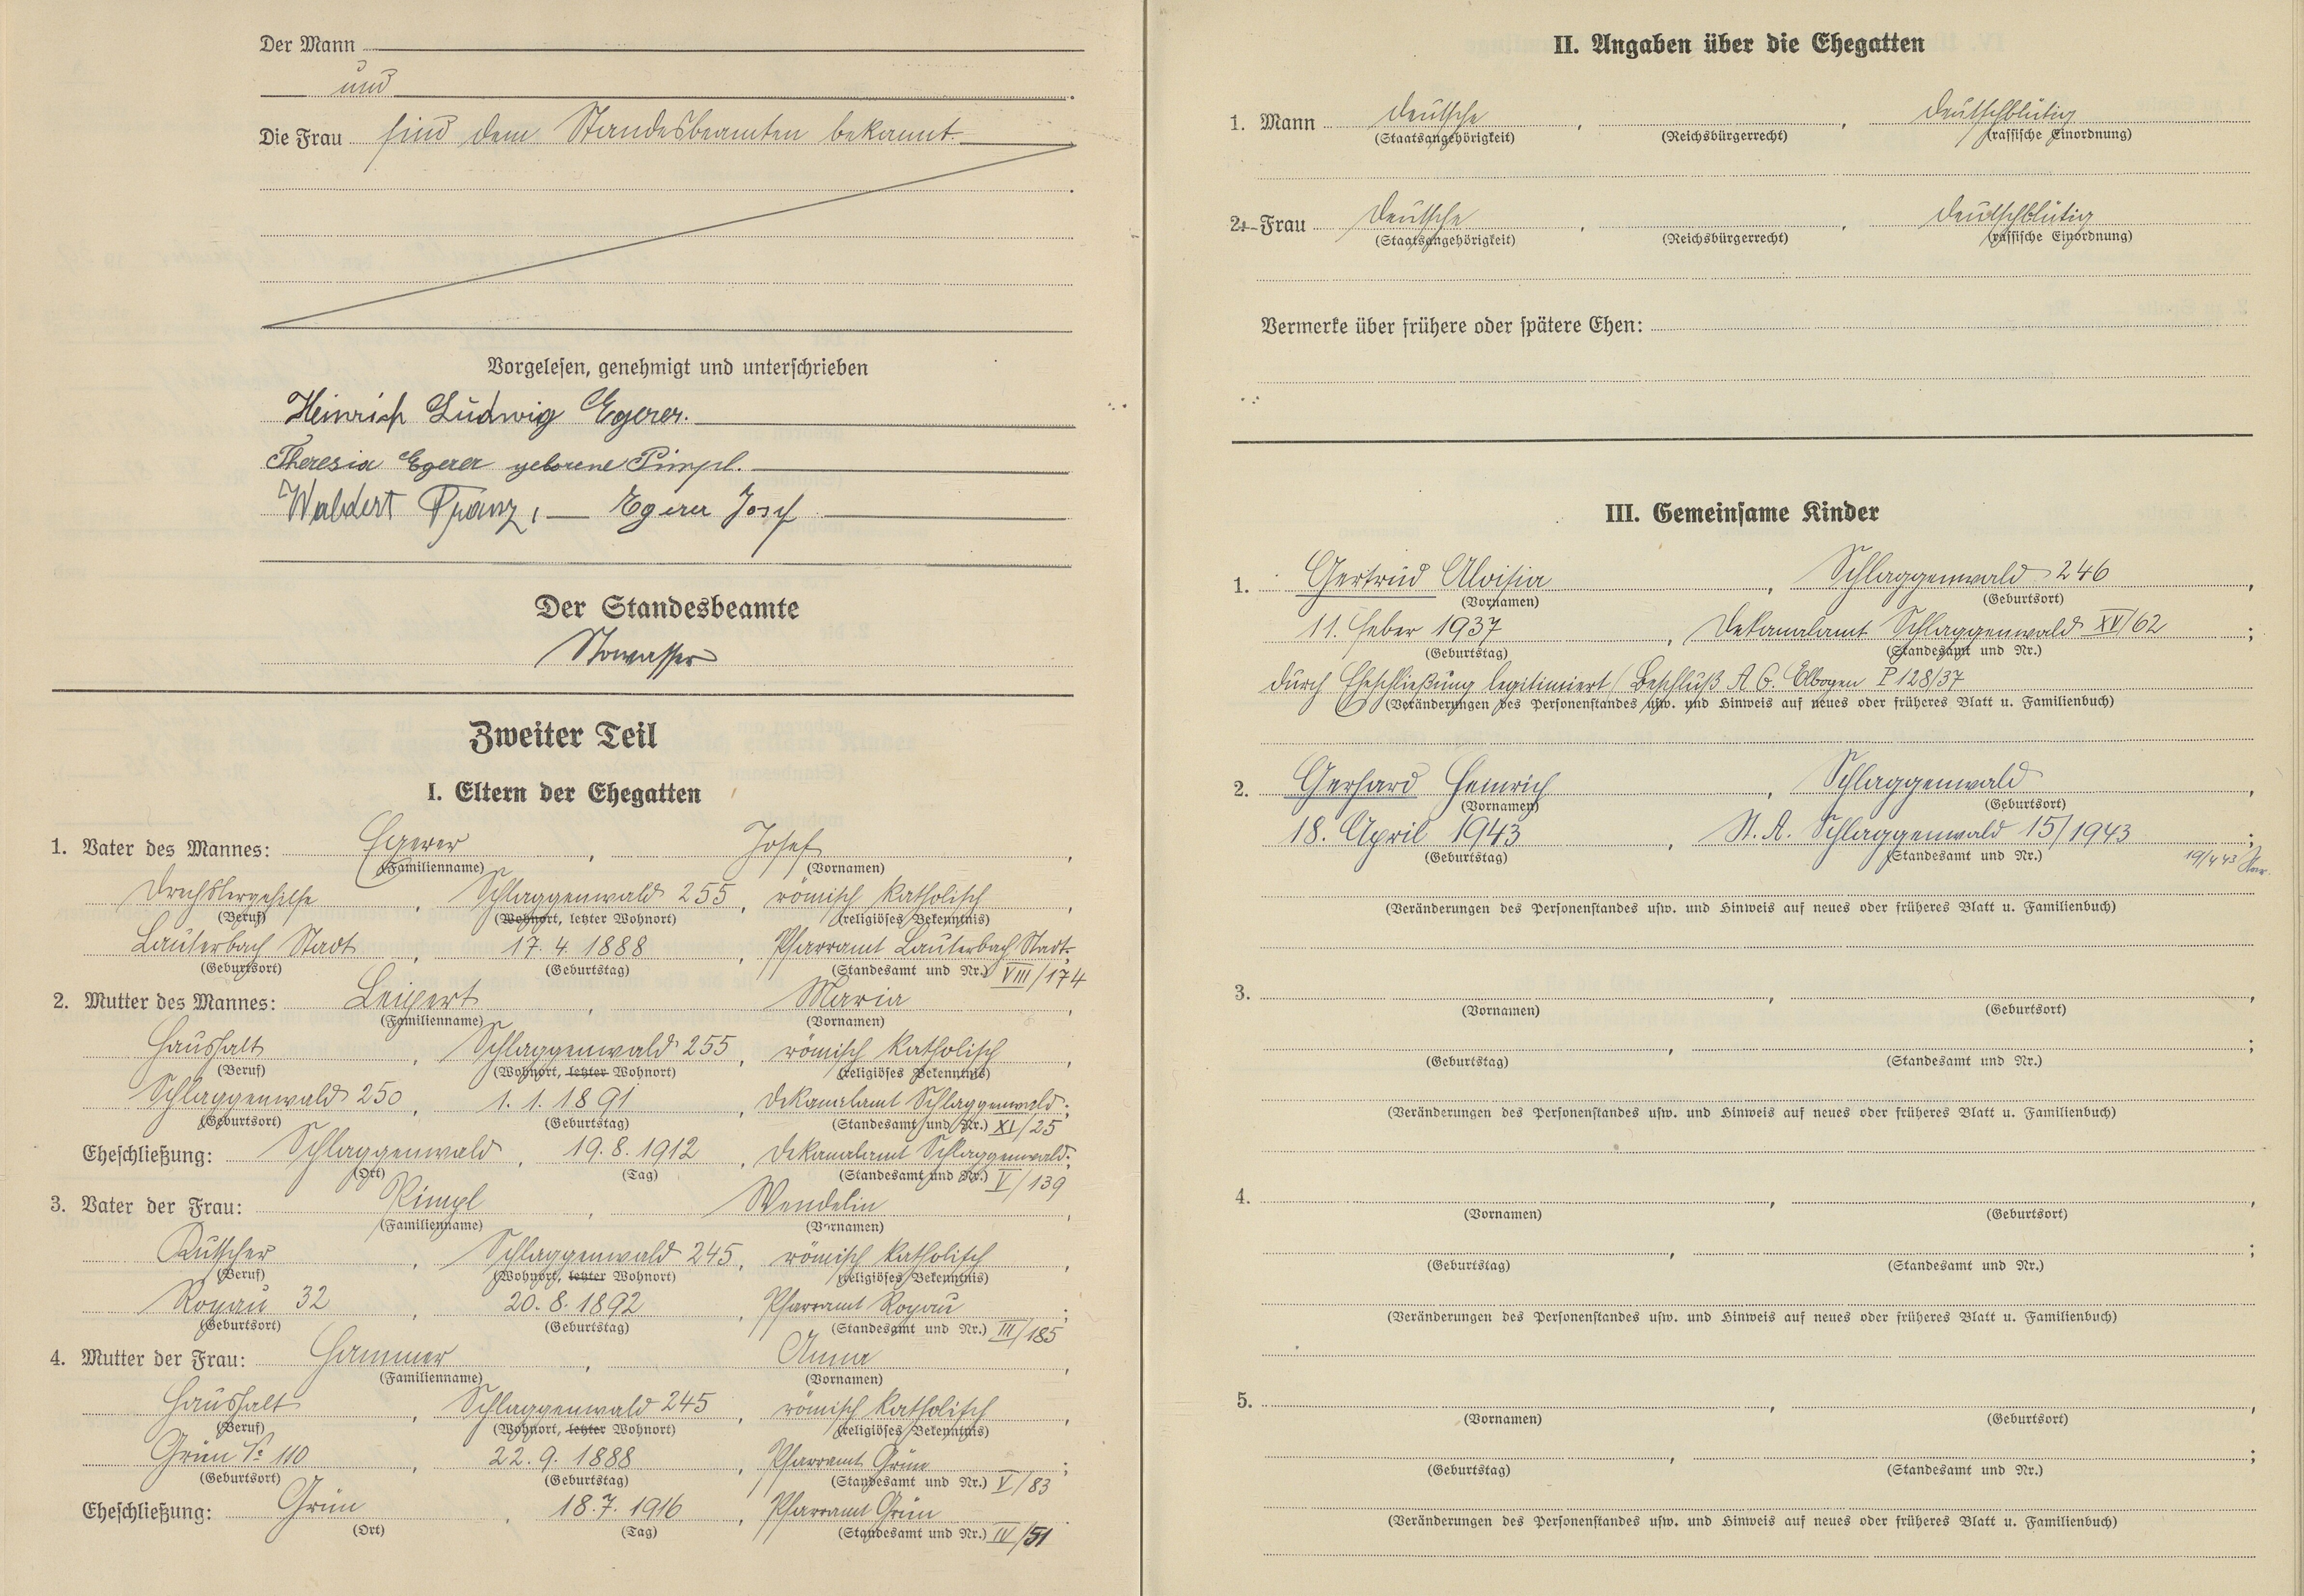 Der Mann
und
Die Frau sind dem Standesbeamten bekannt.
Vorgelesen, genehmigt und unterschrieben
Heinrich Ludwig Egerer.
Theresia Egerer geborene Pimpl.
Waldert Franz, Egerer Josef
Der Standesbeamte
Stowasser
Zweiter Teil
I. Eltern der Ehegatten
1. Vater des Mannes: Egerer, Josef,
(Familienname) (Vornamen)
Drechslergehilfe, Schlaggenwald 255, römisch katholisch,
(Beruf) (Wohnort, letzter Wohnort) (religiöses Bekenntnis)
Lauterbach Stadt, 17. 4. 1888, Pfarramt Lauterbach Stadt;
(Geburtsort) (Geburtstag) (Standesamt und Nr.) VIII/174
2. Mutter des Mannes: Leipert, Maria,
(Familienname) (Vornamen)
Haushalt, Schlaggenwald 255, römisch katholisch,
(Beruf) (Wohnort, letzter Wohnort) (religiöses Bekenntnis)
Schlaggenwald 250, 1. 1. 1891, Dekanalamt Schlaggenwald;
(Geburtsort) (Geburtstag) (Standesamt und Nr.) XI/25
Eheschließung: Schlaggenwald, 19. 8. 1912, Dekanalamt Schlaggenwald;
(Ort) (Tag) (Standesamt und Nr.) V/139
3. Vater der Frau: Pimpl, Wendelin,
(Familienname) (Vornamen)
Kutscher, Schlaggenwald 245, römisch katholisch,
(Beruf) (Wohnort, letzter Wohnort) (religiöses Bekenntnis)
Rogau 32, 20. 8. 1892, Pfarramt Rogau;
(Geburtsort) (Geburtstag) (Standesamt und Nr.) III/185
4. Mutter der Frau: Hammer, Anna,
(Familienname) (Vornamen)
Haushalt, Schlaggenwald 245, römisch katholisch,
(Beruf) (Wohnort, letzter Wohnort) (religiöses Bekenntnis)
Grün № 110, 22. 9. 1888, Pfarramt Grün;
(Geburtsort) (Geburtstag) (Standesamt und Nr.) V/83
Eheschließung: Grün, 18. 7. 1916, Pfarramt Grün
(Ort) (Tag) (Standesamt und Nr.) IV/51
II. Angaben über die Ehegatten
1. Mann deutsche, , deutschblütig
(Staatsangehörigkeit) (Reichsbürgerrecht) (rassische Einordnung)
2. Frau deutsche, , deutschblütig
(Staatsangehörigkeit) (Reichsbürgerrecht) (rassische Einordnung)
Vermerke über frühere oder spätere Ehen:
III. Gemeinsame Kinder
1. Gertrud Aloisia, Schlaggenwald 246,
(Vornamen) (Geburtsort)
11. Feber 1937, Dekanalamt Schlaggenwald XV/62;
(Geburtstag) (Standesamt und Nr.)
durch Eheschließung legitimiert / Beschluß A. G. Elbogen P 128/37
(Veränderungen des Personenstandes usw. und Hinweis auf neues oder früheres Blatt u. Familienbuch)
2. Gerhard Heinrich, Schlaggenwald,
(Vornamen) (Geburtsort)
18. April 1943, St. A. Schlaggenwald 15/1943;
(Geburtstag) (Standesamt und Nr.) 19/4 43
(Veränderungen des Personenstandes usw. und Hinweis auf neues oder früheres Blatt u. Familienbuch)
3. , ,
(Vornamen) (Geburtsort)
, ;
(Geburtstag) (Standesamt und Nr.)
(Veränderungen des Personenstandes usw. und Hinweis auf neues oder früheres Blatt u. Familienbuch)
4. , ,
(Vornamen) (Geburtsort)
, ;
(Geburtstag) (Standesamt und Nr.)
(Veränderungen des Personenstandes usw. und Hinweis auf neues oder früheres Blatt u. Familienbuch)
5. , ,
(Vornamen) (Geburtsort)
, ;
(Geburtstag) (Standesamt und Nr.)
(Veränderungen des Personenstandes usw. und Hinweis auf neues oder früheres Blatt u. Familienbuch)